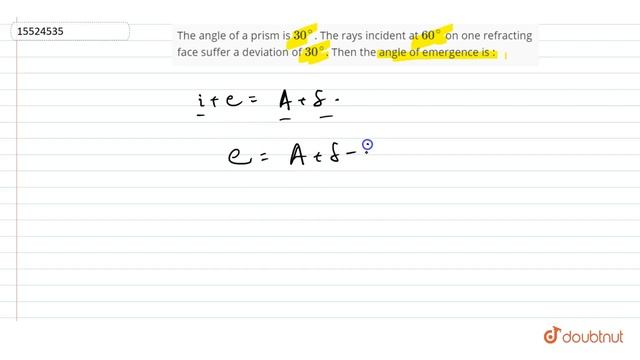 15524535
The angle of a prism is 30°. The rays incident at 60° on one refracting
face suffer a deviation of 30°. Then the angle of emergence is :
i + e = A + δ .
e = A + δ -
doubtnut